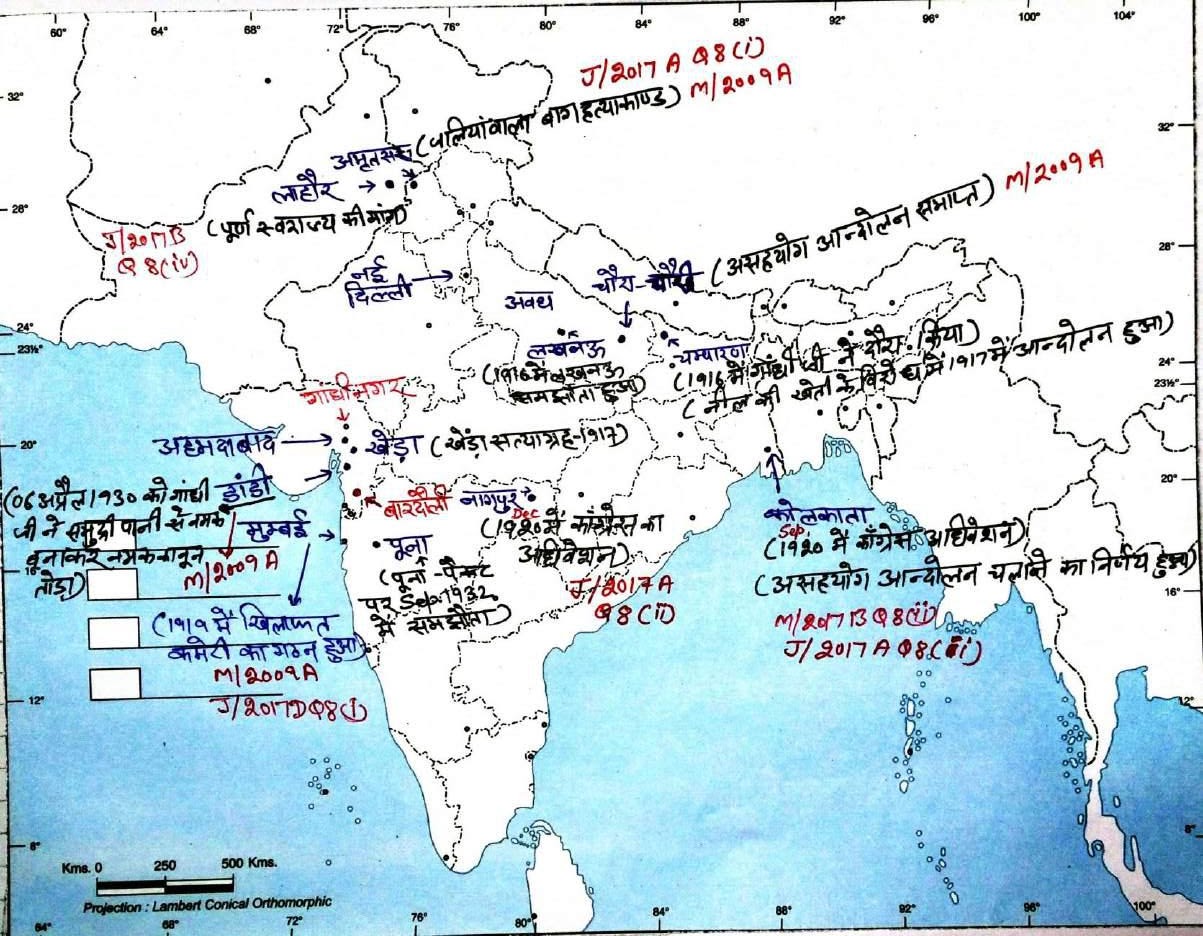 60° 64° 68° 72° 76° 80° 84° 88° 92° 96° 100° 104°
J/2017 A Q8(i)
M/2009 A
32° 32°
अमृतसर (जलियांवाला बाग हत्याकाण्ड)
लाहौर →
(पूर्ण स्वराज्य की मांग)
28° 28°
J/2017B
Q8(iv)
M/2009 A
चौरा-चौरी (असहयोग आन्दोलन समाप्त)
नई
दिल्ली
अवध
24° 24°
23½° 23½°
लखनऊ
(1916 में लखनऊ
समझौता हुआ)
चम्पारण
(1916 में गाँधी जी ने दौरा किया)
(नील की खेती के विरोध में 1917 में आन्दोलन हुआ)
गांधीनगर
20° 20°
अहमदाबाद →
खेड़ा (खेड़ा सत्याग्रह-1917)
(06 अप्रैल 1930 को गांधी
जी ने समुद्री पानी से नमक
बनाकर नमक कानून
तोड़ा)
डांडी
M/2009 A
बारदौली
नागपुर
Dec
(1920 में कांग्रेस का
अधिवेशन)
J/2017A
Q8(ii)
मुम्बई →
(1919 में खिलाफत
कमेटी का गठन हुआ)
M/2009A
J/2017D Q8(i)
पूना
(पूना-पैक्ट
पर Sep. 1932
में समझौता)
कोलकाता
Sep
(1920 में काँग्रेस अधिवेशन)
(असहयोग आन्दोलन चलाने का निर्णय हुआ)
M/2017B Q8(ii)
J/2017 A Q8(iii)
16° 16°
12° 12°
8° 8°
Kms. 0 250 500 Kms.
Projection : Lambert Conical Orthomorphic
64° 68° 72° 76° 80° 84° 88° 92° 96° 100°